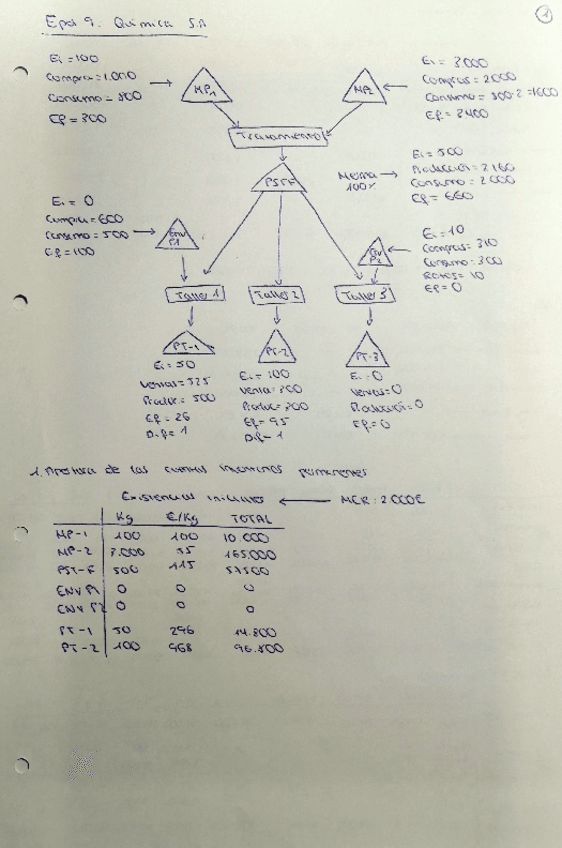 1
Epd 9. Química S.A
Ei = 100
Compras = 1.000
Consumo = 800
Ef = 300
MP1
MP2
Ei = 3000
Compras = 2000
Consumo = 800·2 = 1600
Ef = 3400
Tratamiento
PSTF
Merma
100%
Ei = 500
Producción = 2160
Consumo = 2000
Ef = 660
Ei = 0
Compras = 600
Consumo = 500
Ef = 100
Env P1
Env P2
Ei = 10
Compras = 310
Consumo = 300
Rotos = 10
Ef = 0
Taller 1
Taller 2
Taller 3
PT-1
PT-2
PT-3
Ei = 50
Ventas = 525
Produc. = 500
Ef = 26
Dif = 1
Ei = 100
Venta = 300
Produc = 300
Ef = 95
Dif = 1
Ei = 0
Ventas = 0
Producción = 0
Ef = 0
1. Apertura de las cuentas
Existencias iniciales
MER: 2000€
Kg €/Kg TOTAL
MP-1 100 100 10.000
MP-2 3.000 55 165.000
PST-F 500 115 57500
ENV P1 0 0 0
ENV P2 0 0 0
PT-1 50 296 14.800
PT-2 100 968 96.800